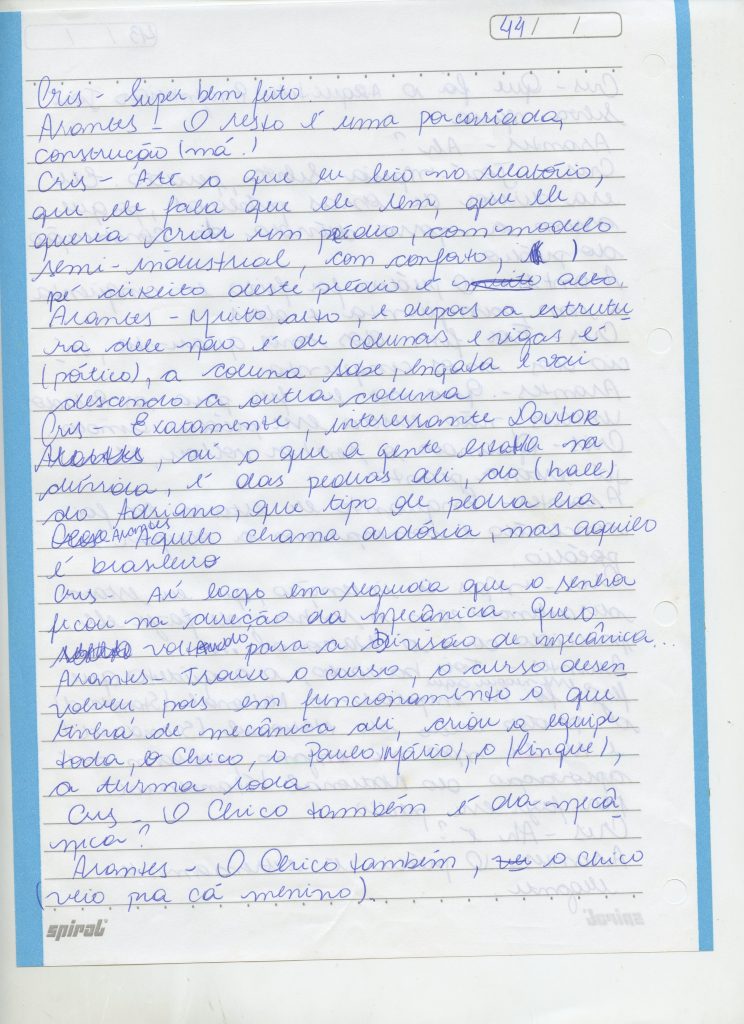 44 / /
Cris - Super bem feito.
Arantes - O resto é uma porcariada,
construção (má.)
Cris - Até o que eu leio no relatório,
que ele fala que ele tem, que ele
queria criar um prédio, com modelo
semi-industrial, com conforto, )
pé direito deste prédio é muito alto.
Arantes - Muito alto, e depois a estrutu
ra dele não é de colunas e vigas é
(pótico), a coluna sobe, engata e vai
descendo a outra coluna.
Cris - Exatamente, interessante Doutor
Arantes, aí o que a gente estava na
dúvida, é das pedras ali, do (hall)
do Adriano, que tipo de pedra era.
Arantes Aquilo chama ardósia, mas aquilo
é brasileiro
Cris - Aí logo em seguida que o senhor
ficou na direção da mecânica que o
voltando para a Divisão de mecânica...
Arantes - Trouxe o curso, o curso desen
volveu pois em funcionamento o que
tinha de mecânica ali, criou a equipe
toda, o Chico, o Paulo (Mário), o (Ringue),
a turma toda
Cris - O Chico também é da mecâ
nica?
Arantes - O Chico também, o chico
(veio pra cá menino).
spiral